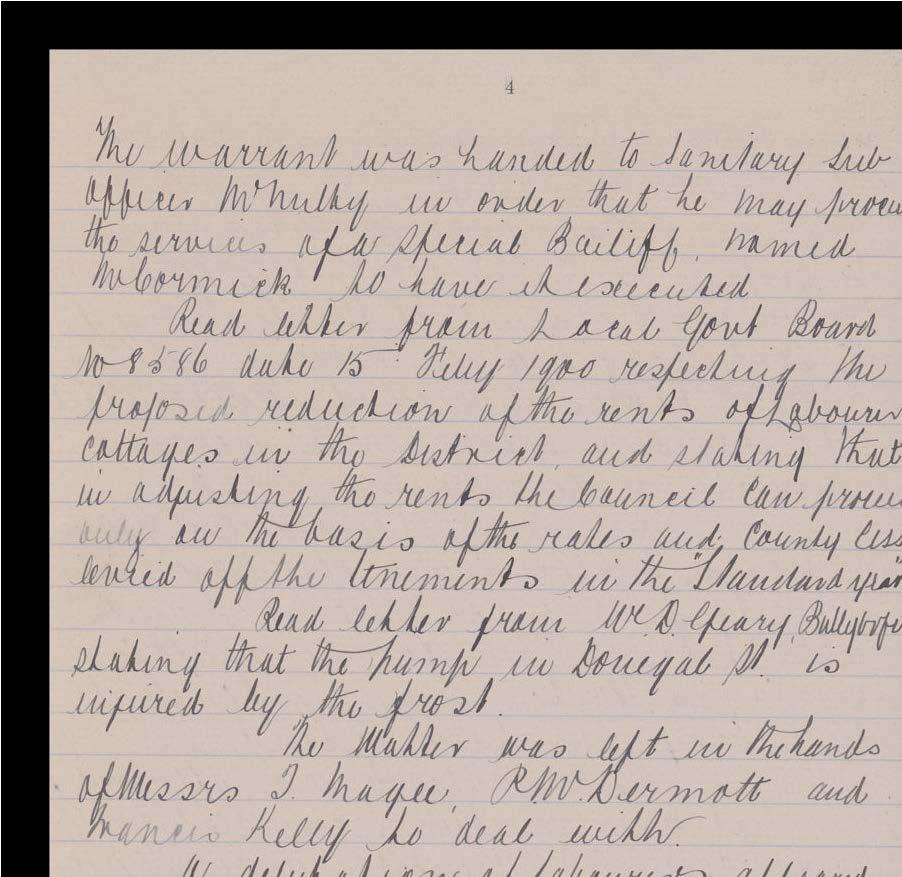 4
The warrant was handed to Sanitary Sub
Officer McNulty in order that he may procu
the services of a special Bailiff, named
McCormick to have it executed
Read letter from Local Govt Board
No 8586 date 15 Feby 1900 respecting the
proposed reduction of the rents of Labourer
cottages in the District, and stating that
in adjusting the rents the Council can procee
only on the basis of the rates and County Cess
levied off the tenements in the "Standard year"
Read letter from Geary, Ballybofe
stating that the pump in Donegal St. is
injured by the frost.
The Matter was left in the hands
of Messrs T. Magee, P McDermott and
Francis Kelly to deal with.
A deputation of labourers